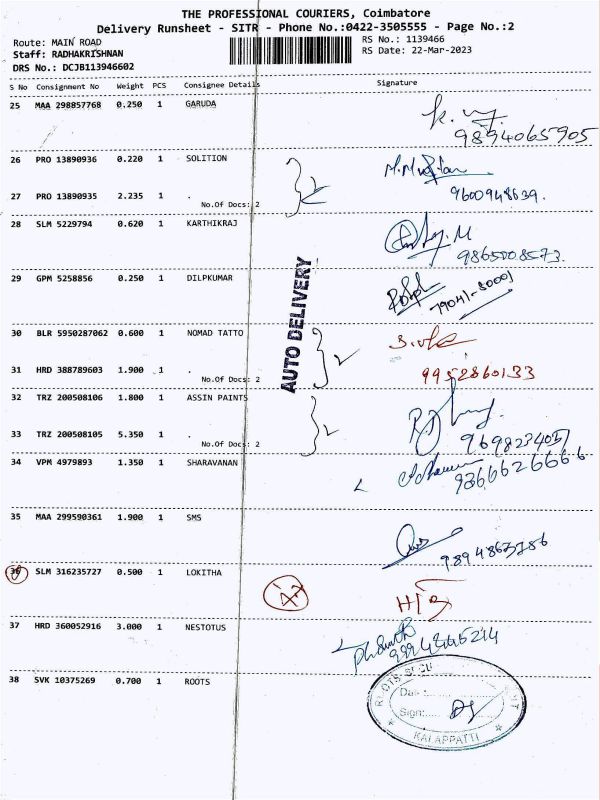 THE PROFESSIONAL COURIERS, Coimbatore
Delivery Runsheet - SITR - Phone No.:0422-3505555 - Page No.:2
Route: MAIN ROAD
RS No.: 1139466
Staff: RADHAKRISHNAN
RS Date: 22-Mar-2023
DRS No.: DCJB113946602
S No Consignment No Weight PCS Consignee Details Signature
25 MAA 298857768 0.250 1 GARUDA
9894065905
26 PRO 13890936 0.220 1 SOLITION
27 PRO 13890935 2.235 1 .
9600948639.
No.Of Docs: 2
28 SLM 5229794 0.620 1 KARTHIKRAJ
9865008573.
AUTO DELIVERY
29 GPM 5258856 0.250 1 DILPKUMAR
79041-80001
30 BLR 5950287062 0.600 1 NOMAD TATTO
31 HRD 388789603 1.900 1 .
9952860133
No.Of Docs: 2
32 TRZ 200508106 1.800 1 ASSIN PAINTS
33 TRZ 200508105 5.350 1 .
No.Of Docs: 2
34 VPM 4979893 1.350 1 SHARAVANAN
35 MAA 299590361 1.900 1 SMS
36 SLM 316235727 0.500 1 LOKITHA
37 HRD 360052916 3.000 1 NESTOTUS
38 SVK 10375269 0.700 1 ROOTS
Date:
Sign:
KALAPPATTI